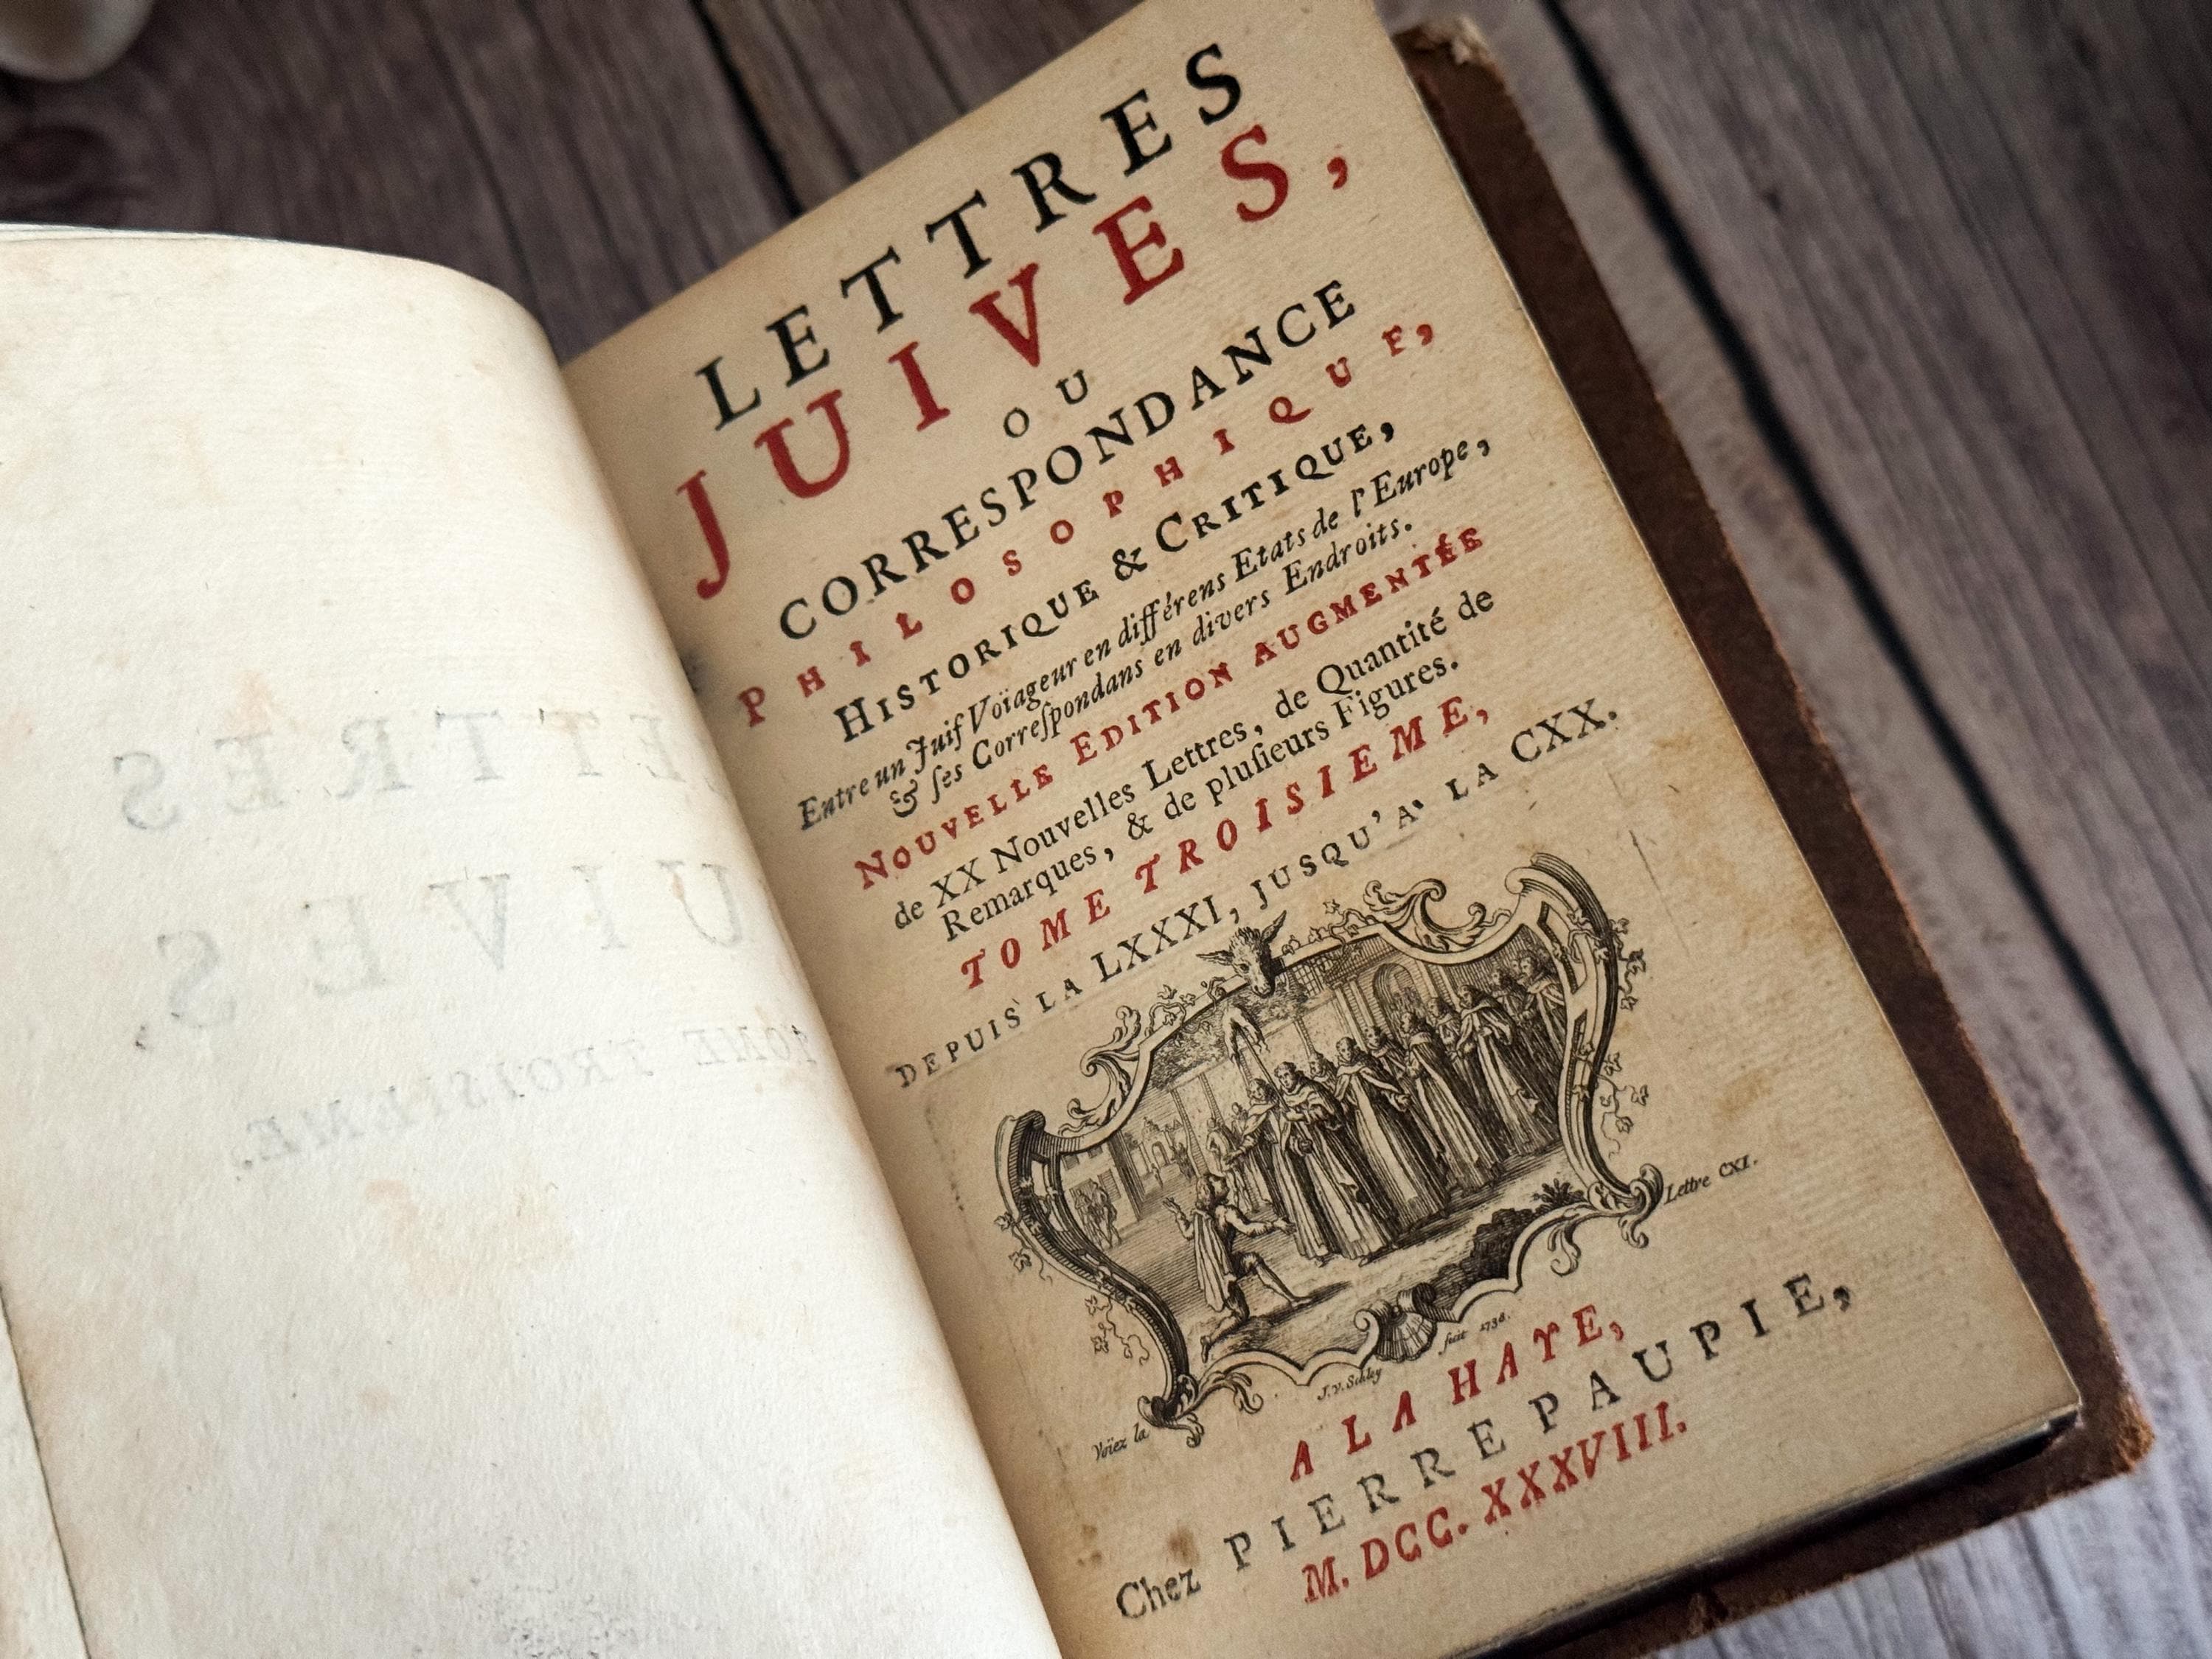 LETTRES
JUIVES,
OU
CORRESPONDANCE
PHILOSOPHIQUE,
HISTORIQUE & CRITIQUE,
Entre un Juif Voïageur en différens Etats de l'Europe,
& ſes Correſpondans en divers Endroits.
NOUVELLE EDITION AUGMENTÉE
de XX Nouvelles Lettres, de Quantité de
Remarques, & de pluſieurs Figures.
TOME TROISIEME,
DEPUIS LA LXXXI, JUSQU'A` LA CXX.
Voïez la Lettre CXI.
J.V. Schley fecit 1738.
A LA HAYE,
Chez PIERRE PAUPIE,
M. DCC. XXXVIII.
LETTRES
JUIVES
TOME TROISIEME.